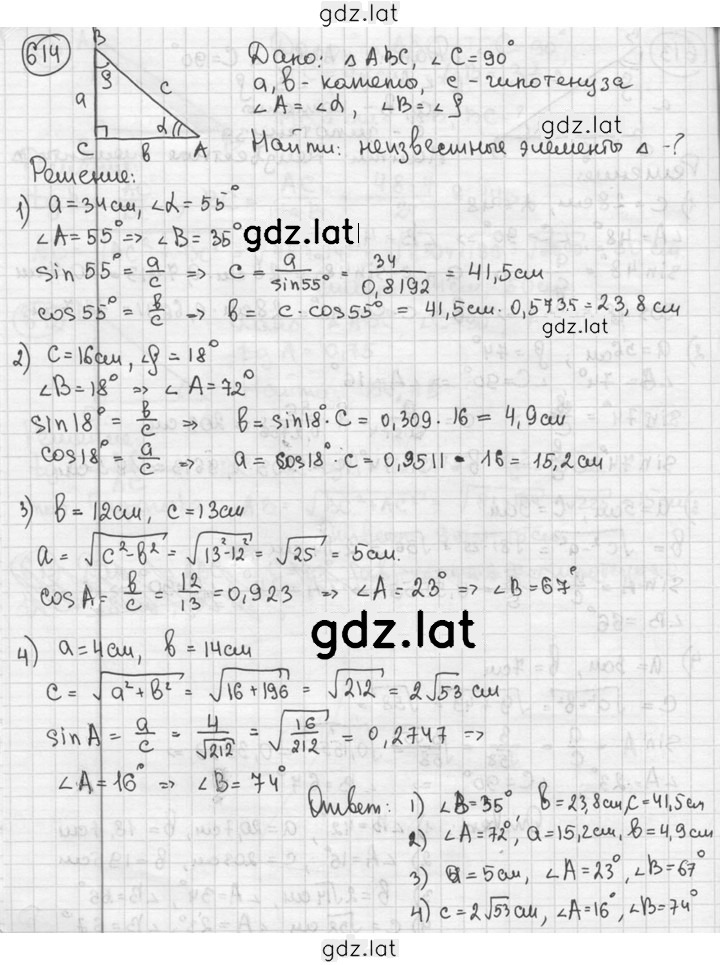 gdz.lat
614
B
β
a
c
C
b
α
A
Дано: △ABC, ∠C=90°
a, b - катеты, c - гипотенуза
∠A = ∠α, ∠B = ∠β
gdz.lat
Найти: неизвестные элементы △ -?
Решение:
1) a = 34 см, ∠α = 55°
∠A = 55° => ∠B = 35°
gdz.lat
sin55° = a/c => c = a/sin55° = 34/0,8192 = 41,5 см
cos55° = b/c => b = c · cos55° = 41,5 см · 0,5735 = 23,8 см
gdz.lat
2) c = 16 см, ∠β = 18°
∠B = 18° => ∠A = 72°
sin18° = b/c => b = sin18° · c = 0,309 · 16 = 4,9 см
cos18° = a/c => a = cos18° · c = 0,9511 · 16 = 15,2 см
3) b = 12 см, c = 13 см
a = √(c²-b²) = √(13²-12²) = √25 = 5 см.
cosA = b/c = 12/13 = 0,923 => ∠A = 23° => ∠B = 67°
gdz.lat
4) a = 4 см, b = 14 см
c = √(a²+b²) = √(16+196) = √212 = 2√53 см
sinA = a/c = 4/√212 = √(16/212) = 0,2747 =>
∠A = 16° => ∠B = 74°
Ответ: 1) ∠B = 35° b = 23,8 см, c = 41,5 см
2) ∠A = 72°, a = 15,2 см, b = 4,9 см
3) a = 5 см, ∠A = 23°, ∠B = 67°
4) c = 2√53 см, ∠A = 16°, ∠B = 74°
gdz.lat